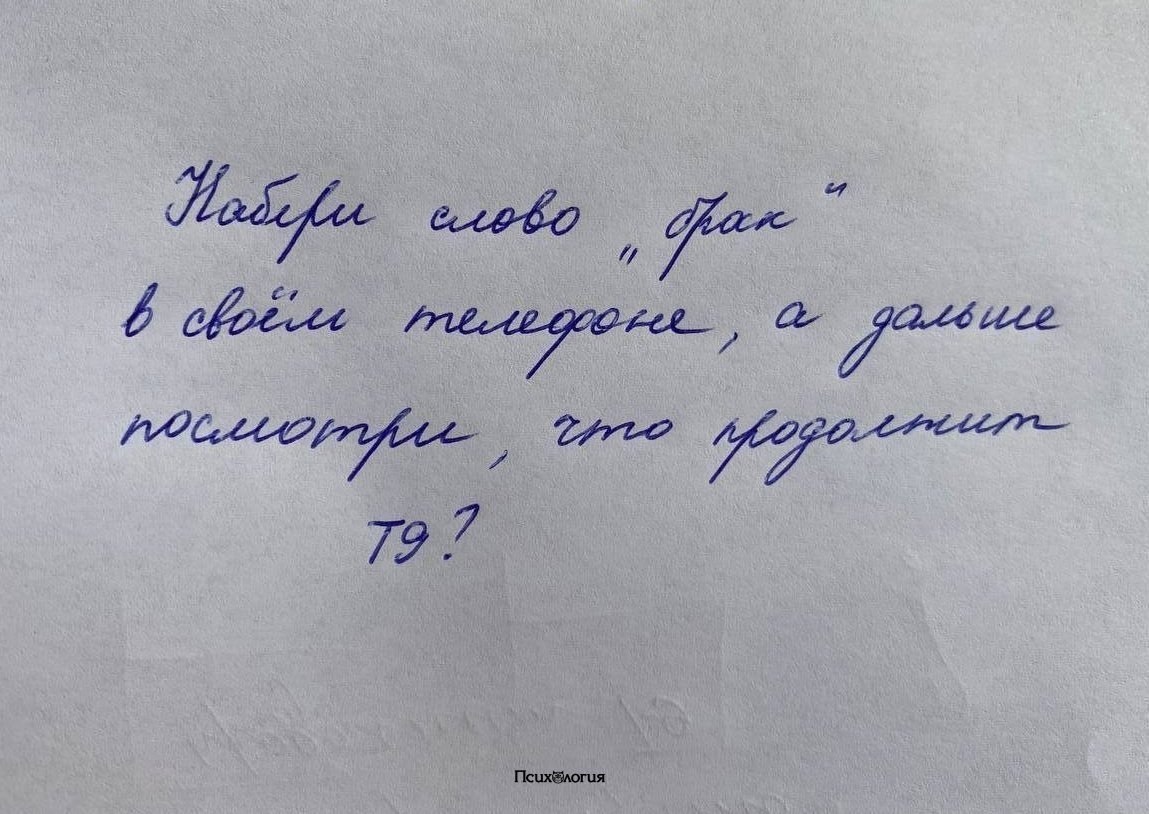 Набери слово „брак“
в своём телефоне, а дальше
посмотри, что продолжит
Т9?
Психология